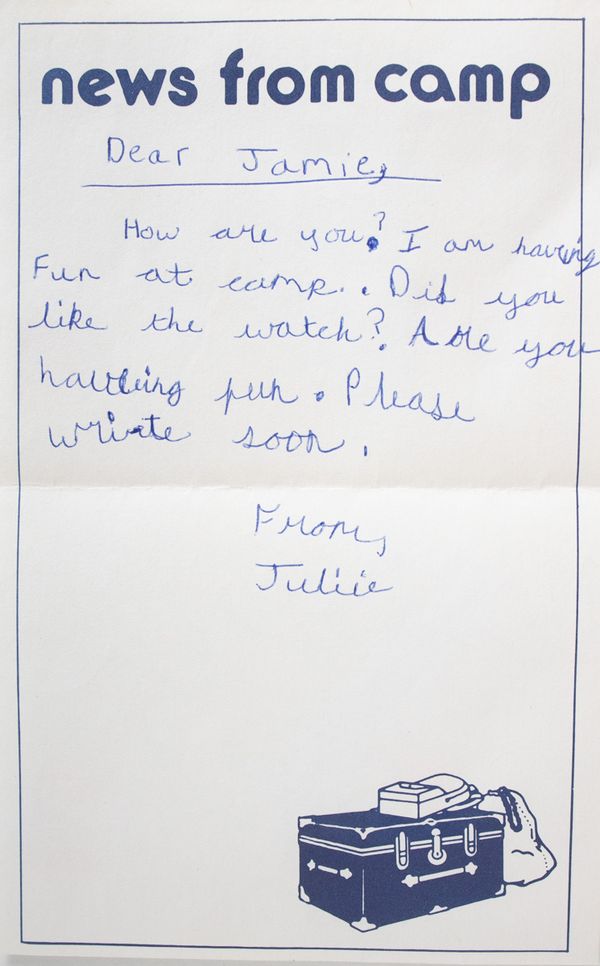 news from camp
Dear Jamie,
How are you? I am having
Fun at camp. Did you
like the watch? Are you
having fun. Please
write soon.
From,
Julie